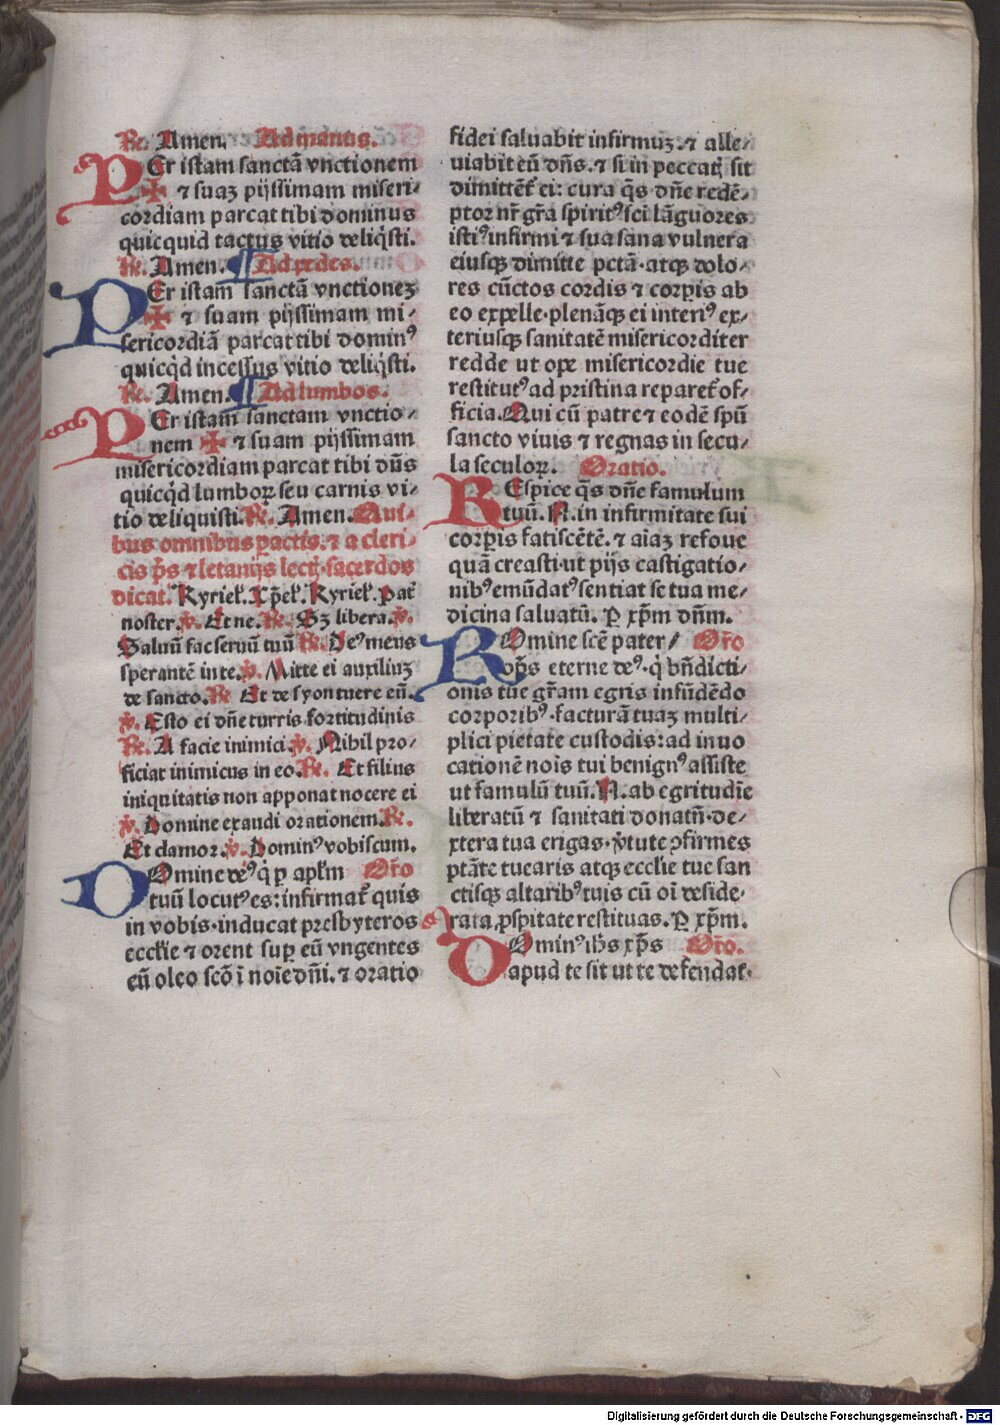 ℟. Amen. Ad manus.
PEr istam sanctā vnctionem
✠ ⁊ suaꝫ pijssimam miseri⸗
cordiam parcat tibi dominus
quicquid tactus vitio deliq̇sti.
℟. Amen. ¶ Ad pedes.
PEr istam̄ sanctā vnctioneꝫ
✠ ⁊ suam pijssimam mi⸗
sericordiā parcat tibi dominꝰ
quicq̇d incessus vitio deliq̇sti.
℟. Amen. ¶ Ad lumbos.
PEr istam̄ sanctam vnctio⸗
nem ✠ ⁊ suam pijssimam
misericordiam parcat tibi dūs
quicq̇d lumboꝝ seu carnis vi⸗
tio deliquisti. ℟. Amen. Qui⸗
bus omnibus ꝑactis. ⁊ a cleri⸗
cis p̄s ⁊ letanijs lectꝭ. sacerdos
dicat. Kyriel̄. Xp̄el̄. Kyriel̄. Pat̄
noster. ℣. Et ne. ℟. Sꝫ libera. ℣.
Saluū fac seruū tuū ℟. Deꝰ meus
sperantē in te. ℣. Mitte ei auxiliuꝫ
de sancto. ℟ Et de syon tuere eū.
℣. Esto ei dn̄e turris fortitudinis
℟. A facie inimici. ℣. Nihil pro⸗
ficiat inimicus in eo. ℟. Et filius
iniquitatis non apponat nocere ei
℣. Domine exaudi orationem. ℟.
Et clamor. ℣. Dominꝰ vobiscum.
DOmine deꝰ q̇ ꝑ apl̄m Or̄o
tuū locutꝰ es: infirmat̄ quis
in vobis. inducat presbyteros
eccl̄ie ⁊ orent suꝑ eū vngentes
eū oleo scō ī noīe dn̄i. ⁊ oratio
fidei saluabit infirmuꝫ. ⁊ alle⸗
uiabit eū dn̄s. ⁊ si in peccatꝭ sit
dimittēt̄ ei: cura q̄s dn̄e redē⸗
ptor nr̄ gr̄a spiritꝰ sc̄i lāguores
istiꝰ infirmi ⁊ sua sana vulnera
eiusqꝫ dimitte pctā. atqꝫ dolo⸗
res cūctos cordis ⁊ corꝑis ab
eo expelle. plenāqꝫ ei interiꝰ ex⸗
teriusqꝫ sanitatē misericorditer
redde ut ope misericordie tue
restitutꝰ ad pristina reparet̄ of⸗
ficia. Qui cū patre ⁊ eodē spū
sancto viuis ⁊ regnas in secu⸗
la seculoꝝ. Oratio.
REspice q̄s dn̄e famulum
tuū. N. in infirmitate sui
corꝑis fatiscētē. ⁊ aīaꝫ refoue
quā creasti. ut pijs castigatio⸗
nibꝰ emūdatꝰ sentiat se tua me⸗
dicina saluatū. P xp̄m dn̄m.
DOmine scē pater⸗ Or̄o
op̄s eterne deꝰ. q̇ bn̄dicti⸗
onis tue gr̄am egris infūdēdo
corporibꝰ. facturā tuaꝫ multi⸗
plici pietate custodis: ad inuo
cationē noīs tui benignꝰ assiste
ut famulū tuū. N. ab egritudīe
liberatū ⁊ sanitati donatū. de⸗
xtera tua erigas. v̇tute ↄfirmes
ptāte tuearis atqꝫ eccl̄ie tue san
ctisqꝫ altaribꝰ tuis cū oī deside⸗
rata ꝓspitate restituas. P xp̄m.
DOminꝰ ih̄s xp̄s Or̄o.
apud te sit ut te defendat.
Digitalisierung gefördert durch die Deutsche Forschungsgemeinschaft - DFG